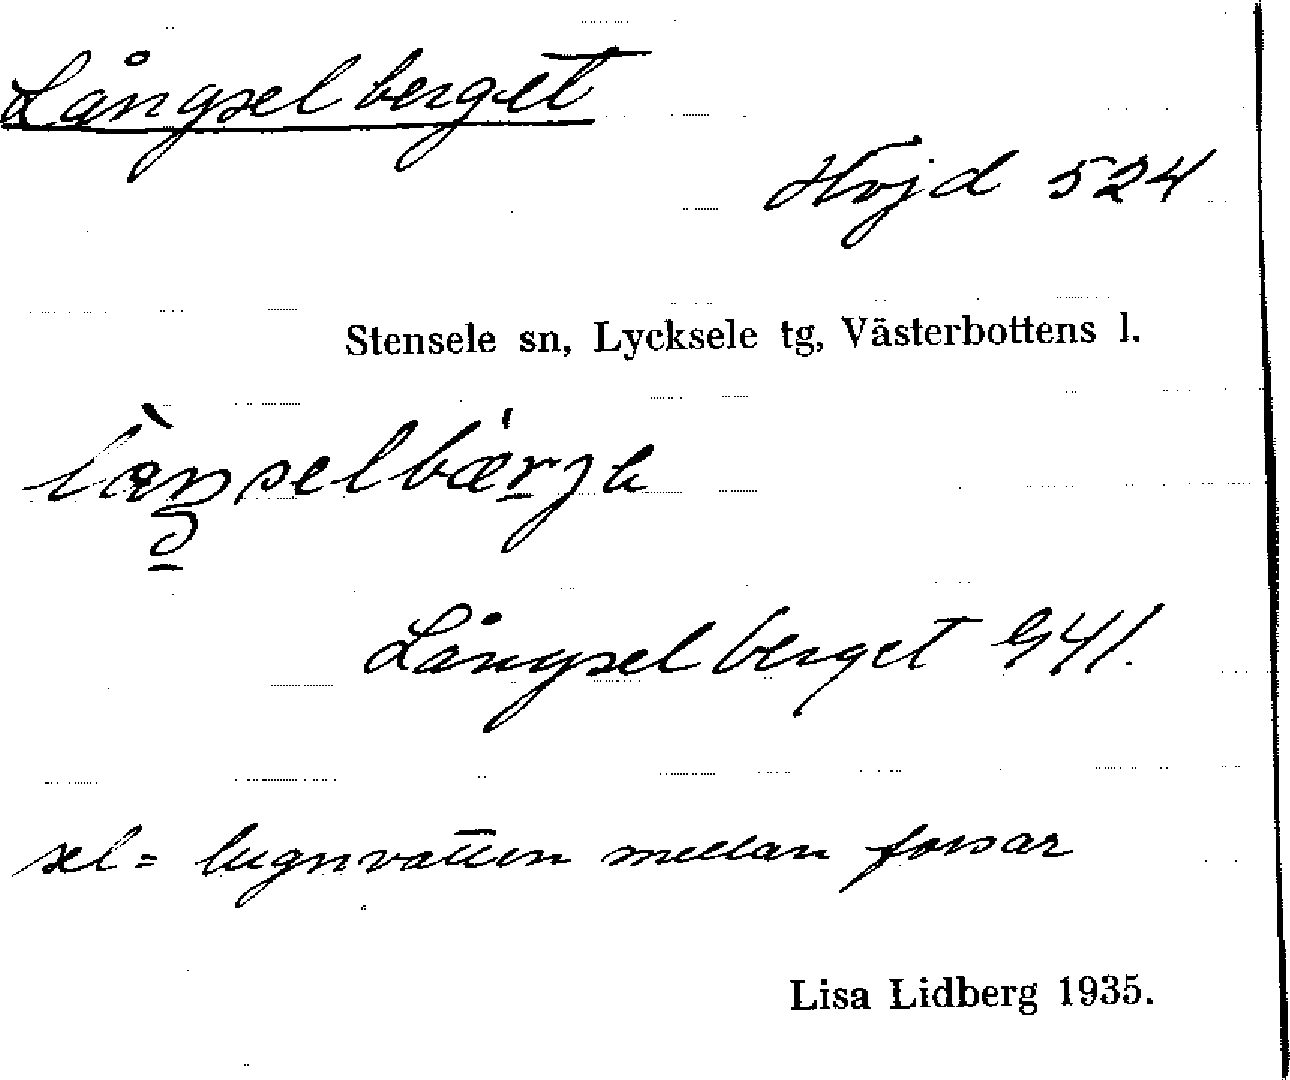 Långselberget
Höjd 524
Stensele sn, Lycksele tg, Västerbottens l.
Långselberget
sel = lugnvatten mellan forsar
Lisa Lidberg 1935.